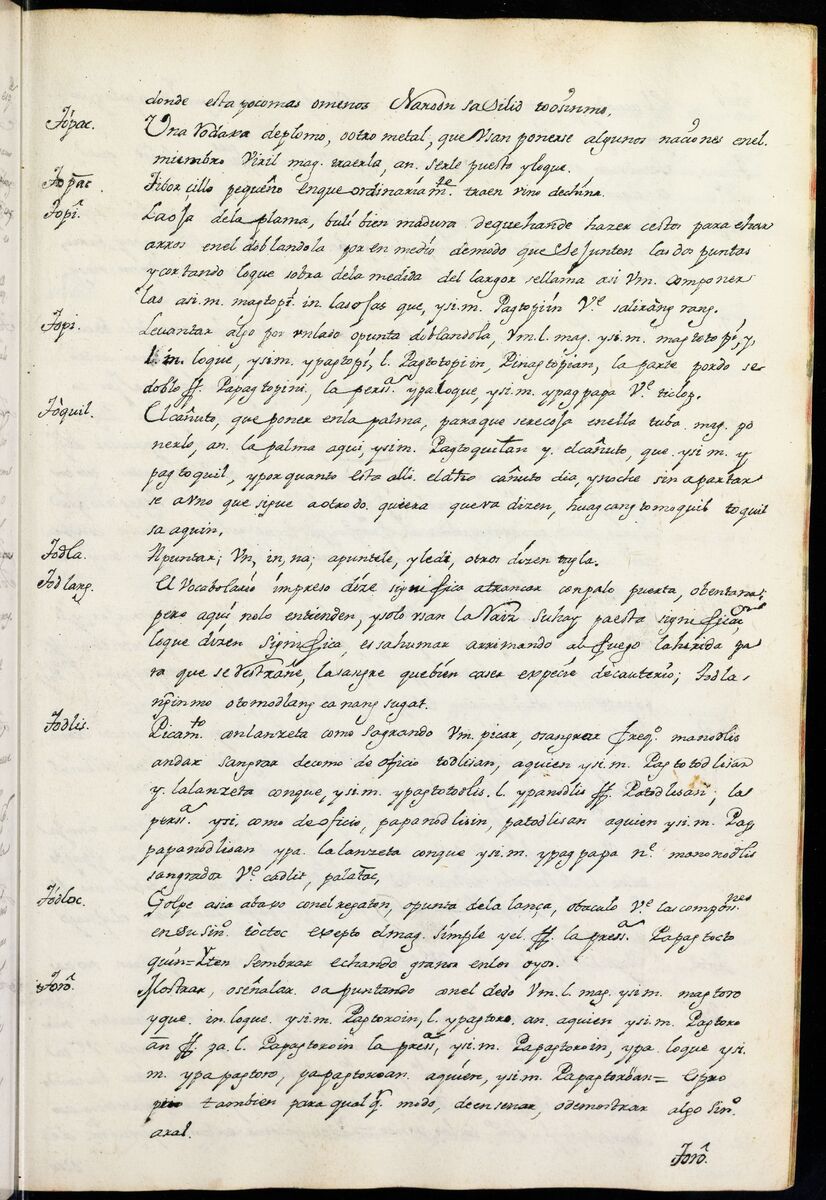 donde esta pocomas omenos Naroon sa Silid
Tópac. Una Rodaxa deplomo, ootro metal, que Usan ponerse algunos naciones enel.
miembro Viril mag. traerla, an. serle puesto yloque.
Topac Tibor cillo pequeño enque ordinariam.te traen vino dechina.
Topî La osa dela plama, buli bien madura dequehande hazer cestos para echar
arros enel doblandola por en medio demodo que se Junten las dos puntas
y cortando loque sobra dela medida del largor sellama asi Vm. componer
las asi.m. magtopi. in. lasosas que, ysi.m. Pagtopiin V.e salirang rang.
Topi. Levantar algo por unlado opunta doblandola, Vm. l. mag. ysi.m. magtotopi, y,
l. in. loque, ysi.m. ypagtopi, l. Pagtotopiin, Pinagtopian, la parte pordo se
doblo ff. Papagtopini, la pers.a ypa loque, ysi.m. ypagpapa V.e
Tòquil. El cañuto, que poner enla palma, paraque serecosa enella tuba mag. po
nerlo, an. la palma aqui ysi.m. Pagtoquilan y. elcañuto, que. ysi.m. y
pagtoquil, yporquanto esta alli. el dho cañuto dia, ynoche sin apartar
se auno que sigue aotrodo. quiera que va dizen, huag cang tomoquil toquil
sa aquin.
Todla. Apuntar; Vn, in, na; apuntele, yledi, otros dizen tyla.
Todlang. El Vocabolario impreso dize significa atrancar conpalo puerta, obentana;
pero aqui nolo entienden, ysolo usan la Vaiz Suhay paesta significa.on
loque dizen significa, es sahumar arrimando al fuego laherida pa
ra que se restrañe, lasangre quebien caser expecie decauterio; Todla
nginmo otomodlang ca nang sugat.
Todlis. Picam.to conlanzeta como sagrando Vm. picar, osangrar freq.o manodlis
andar sangrar decomo de oficio todlisan, aquien ysi.m. Pagtotodlisan
y. lalanzeta conque, ysi.m. ypagtotodlis. l. ypanodlis ff. Patodlisan; la
pers.a ysi. como de oficio, papanodlisin, patodlisan aquien ysi.m. Pag
papanodlisan ypa. lalanzeta conque ysi.m. ypagpapa n.e manonodlis
sangrador V.e cadlit, palatac,
Tódloc. Golpe asia abaxo conel regaton, opunta dela lança, obaculo V.e las compon.nes
en su sin.o tòctoc exepto elmag. simple yel ff. la press.a Papagtocto
quin= Yten sembrar echando granos enlos oyos.
Torô. Mostrar, oseñalar oapuntando conel dedo Vm. l. mag. ysi.m. magtoro
yque. in. loque. ysi.m. Pagtoroin, l. ypagtoro. an. aquien ysi.m. Pagtoro
an ff. pa. l. Papagtoroin la press.a, ysi.m. Papagtoroin, ypa. loque ysi.
m. ypapagtoro, ypapagtoroan. aquien, ysi.m. Papagtoróan= Espro
pio tambien para qual q.r modo, deensenar, odemostrar algo sin.o
aral.
Torô.